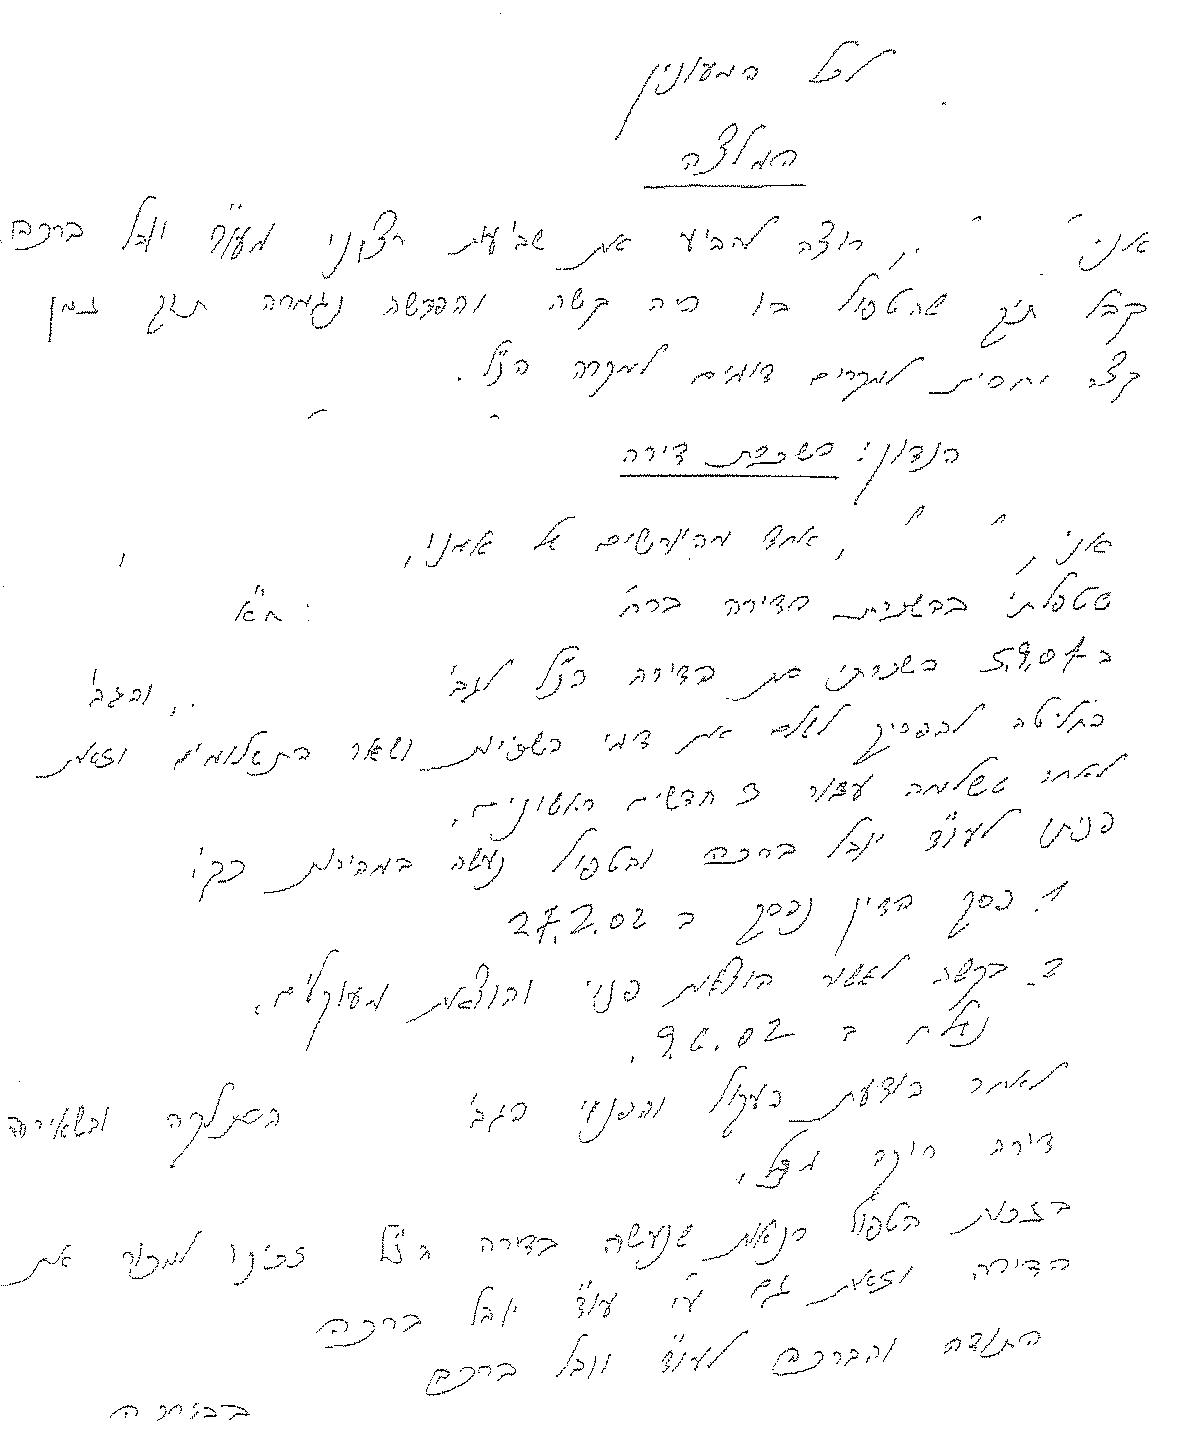 לכל המעונין
המלצה
אני , רוצה להביע את שביעת רצוני מעו"ד יובל ברכה.
קבל תיק שהטפול בו היה קשה והפרשה נגמרה תוך זמן
קצר יחסית למקרים דומים למקרה הנ"ל.
הנדון: השכרת דירה
אני, , אחד מהיורשים של אמנו,
שטפלתי בהשכרת הדירה ברח' ת"א
ב 5.9.01 השכרתי את הדירה הנ"ל לגב' , והגב'
החליטה להפסיק לשלם את דמי השכירות ושאר התשלומים וזאת
לאחר ששלמה עבור 3 חדשים ראשונים.
פניתי לעו"ד יובל ברכה והטפול נעשה במהירות הבזק
1. פסק הדין נפסק ב 27.2.02
2. בקשה לאשור הוצאת פנוי והוצאת מעוקלים.
נשלח ב 9.6.02.
לאחר הודעת העקול והפנוי הגב' הסתלקה והשאירה
דירה ריקה מכל.
בזכות הטפול הנאות שנעשה בדירה הנ"ל זכינו למכור את
הדירה וזאת גם ע"י עו"ד יובל ברכה
התודה והברכה לעו"ד יובל ברכה
בברכה